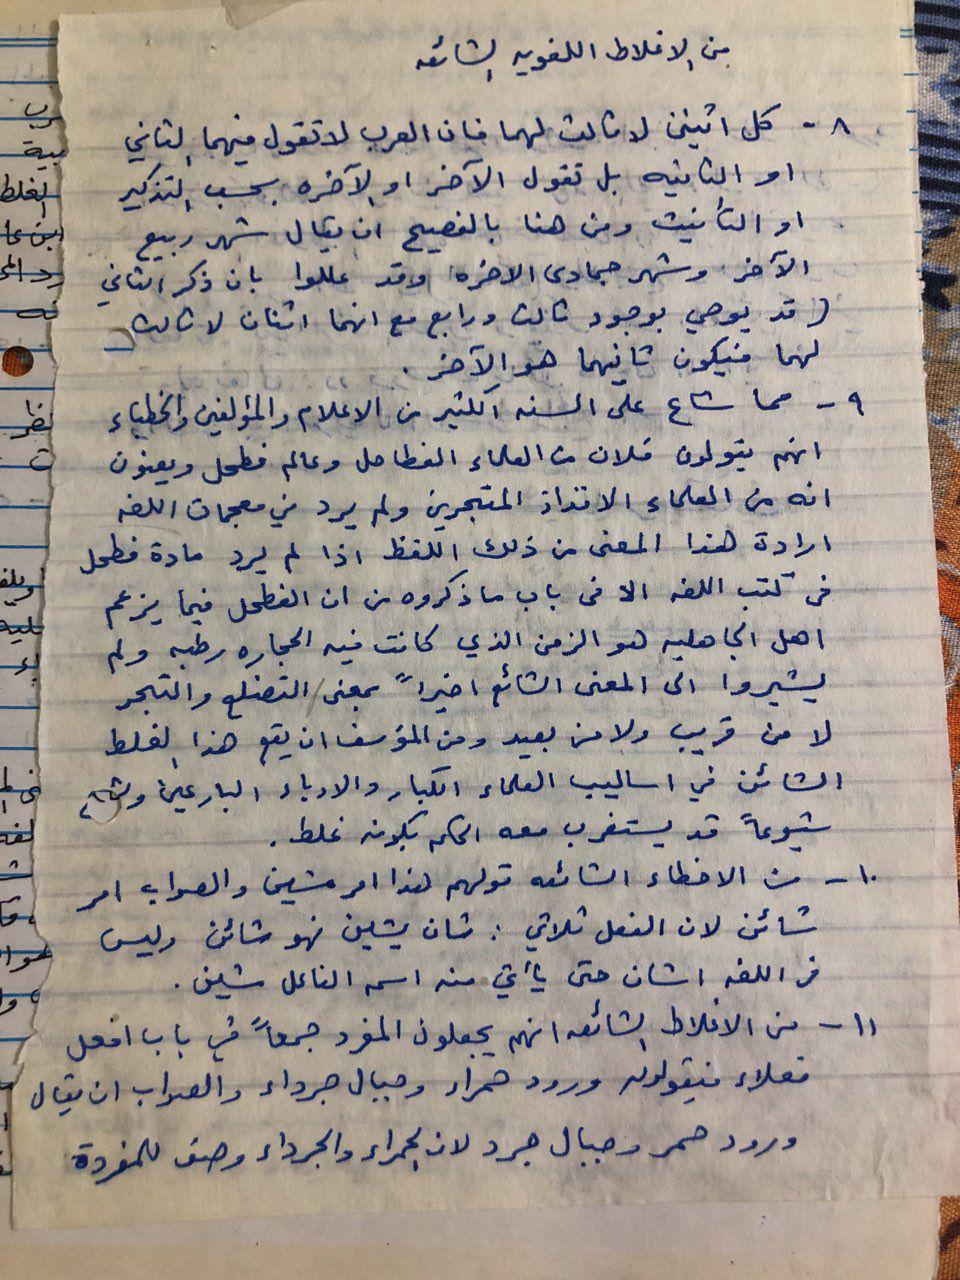 من الاغلاط اللغويه الشائعه
٨ - كل اثنين لا ثالث لهما فان العرب لا تقول فيهما الثاني
او الثانيه بل تقول الآخر او الآخره بحسب التذكير
او التأنيث ومن هنا بالفصيح ان يقال شهر ربيع
الآخر وشهر جمادى الاخره وقد عللوا بان ذكر الثاني
قد يوحي بوجود ثالث ورابع مع انهما اثنان لا ثالث
لهما فيكون ثانيهما هو الآخر .
٩ - مما شاع على السنه الكثير من الاعلام والمؤلفين والخطباء
انهم يقولون فلان من العلماء الفطاحل وعالم فطحل ويعنون
انه من العلماء الافذاذ المتبحرين ولم يرد في معجمات اللغه
ارادة هذا المعنى من ذلك اللفظ اذا لم يرد مادة فطحل
في كتب اللغه الا في باب ما ذكروه من ان الفطحل فيما يزعم
اهل الجاهليه هو الزمن الذي كانت فيه الحجاره رطبه ولم
يشيروا الى المعنى الشائع اخيراً بمعنى التضلع والتبحر
لا من قريب ولا من بعيد ومن المؤسف ان يقع هذا الغلط
الشائن في اساليب العلماء الكبار والادباء البارعين وشاع
شيوعاً قد يستغرب معه الحكم بكونه غلط .
١٠ - من الاخطاء الشائعه قولهم هذا امر مشين والصواب امر
شائن لان الفعل ثلاثي : شان يشين فهو شائن وليس
في اللغه اشان حتى يأتي منه اسم الفاعل مشين .
١١ - من الاغلاط الشائعه انهم يجعلون المفرد جمعاً في باب افعل
فعلاء فيقولون ورود حمراء وجبال جرداء والصواب ان يقال
ورود حمر وجبال جرد لان الحمراء والجرداء وصف للمفردة